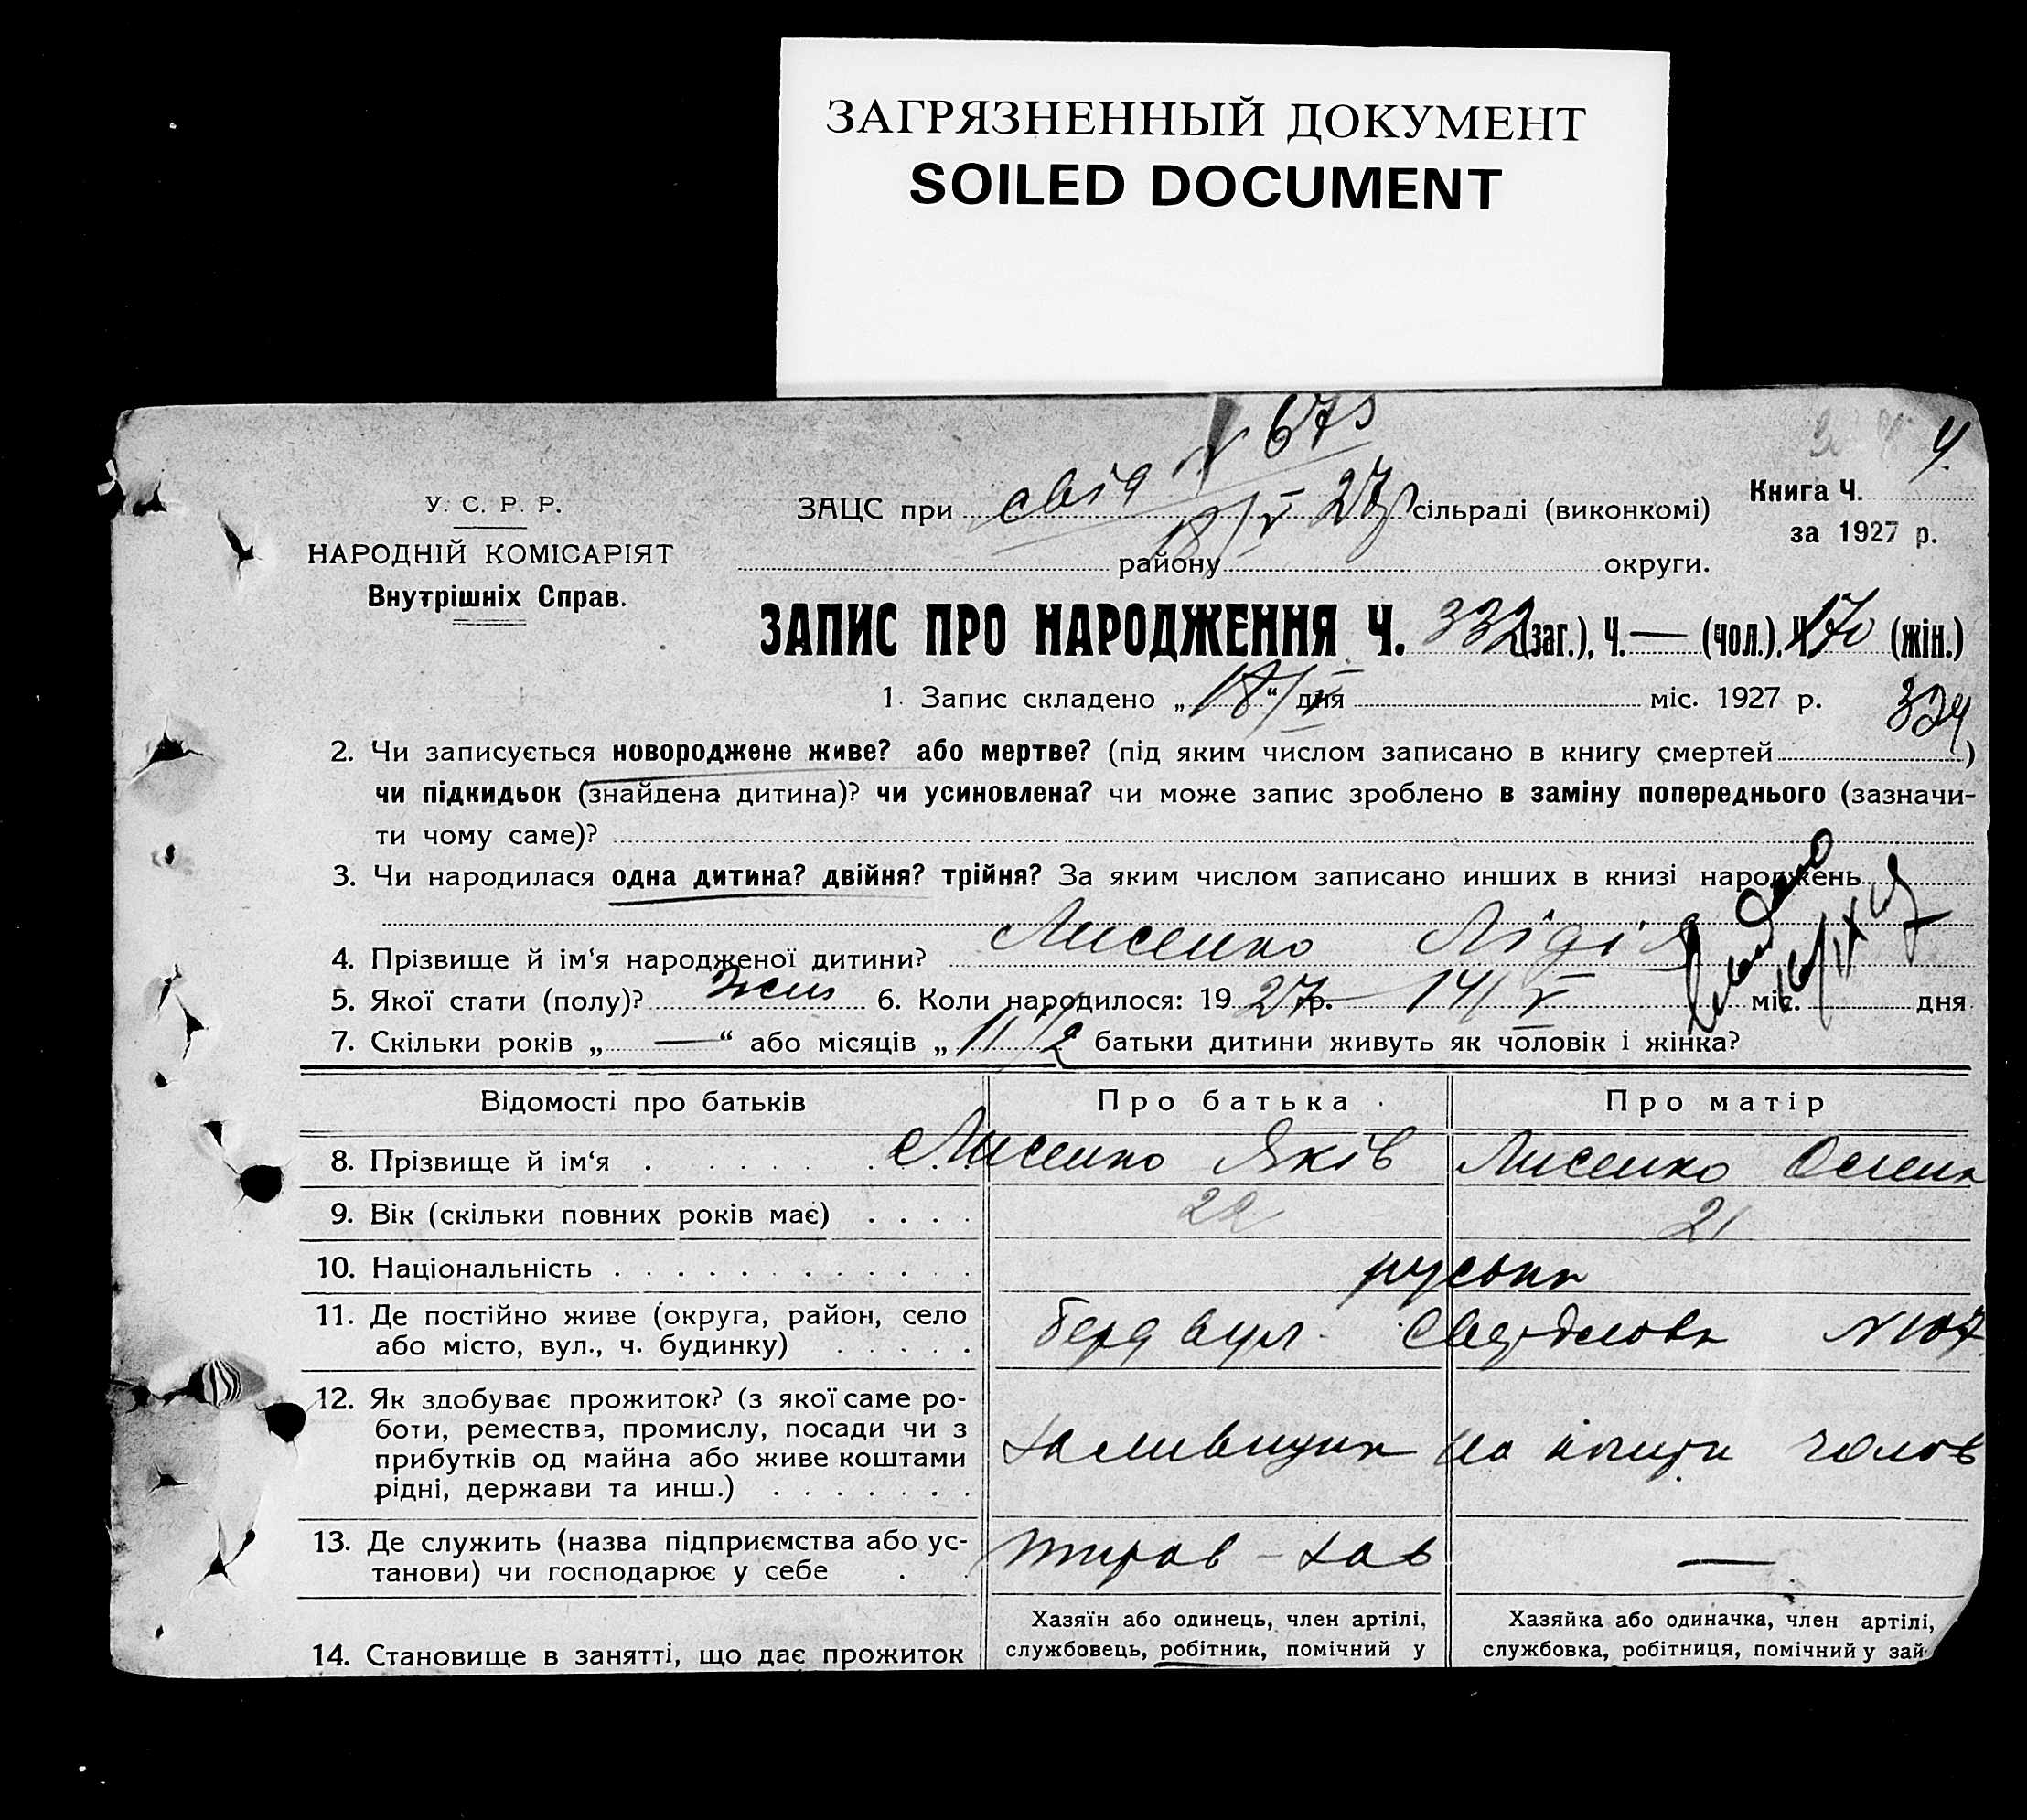 ЗАГРЯЗНЕННЫЙ ДОКУМЕНТ
SOILED DOCUMENT
673
4
У. С. Р. Р.
НАРОДНІЙ КОМІСАРІЯТ
Внутрішніх Справ.
ЗАЦС при 18/V 27р сільраді (виконкомі)
району округи.
Книга Ч.
за 1927 р.
ЗАПИС ПРО НАРОДЖЕННЯ Ч. 332 (заг.), Ч. — (чол.), Ч. 170 (жін.)
1. Запис складено „18/V“ дня міс. 1927 р.
324
2. Чи записується новороджене живе? або мертве? (під яким числом записано в книгу смертей )
чи підкидьок (знайдена дитина)? чи усиновлена? чи може запис зроблено в заміну попереднього (зазначи-
ти чому саме)?
3. Чи народилася одна дитина? двійня? трійня? За яким числом записано инших в книзі народжень
4. Прізвище й ім‘я народженої дитини? Лисенко Лідія
5. Якої стати (полу)? жін 6. Коли народилося: 1927 р. 14/V міс. дня
7. Скільки років „ — “ або місяців „ 11 1/2 батьки дитини живуть як чоловік і жінка?
Відомості про батьків Про батька Про матір
8. Прізвище й ім‘я Лисенко Яків Лисенко Олена
9. Вік (скільки повних років має) 22 21
10. Національність руська
11. Де постійно живе (округа, район, село
або місто, вул., ч. будинку) Берд вул. Свердлова N 107
12. Як здобуває прожиток? (з якої саме ро-
боти, ремества, промислу, посади чи з
прибутків од майна або живе коштами
рідні, держави та инш.) на кошти чолов
13. Де служить (назва підприємства або ус-
танови) чи господарює у себе —
Хазяїн або одинець, член артілі,
службовець, робітник, помічний у
Хазяйка або одиначка, член артілі,
службовка, робітниця, помічний у зай-
14. Становище в занятті, що дає прожиток